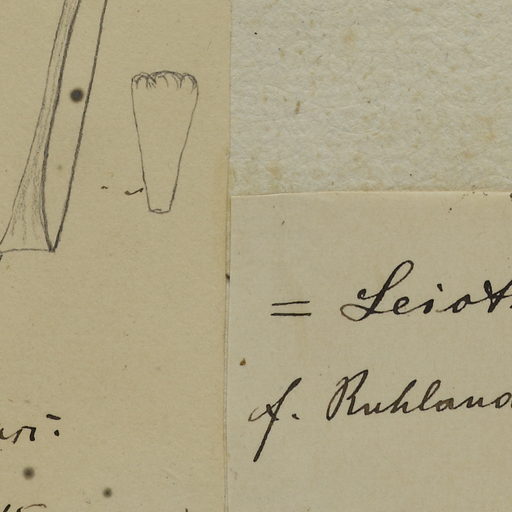 = Leiot
f. Ruhland